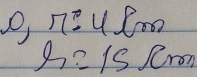 r = 4 cm
h = 15 cm